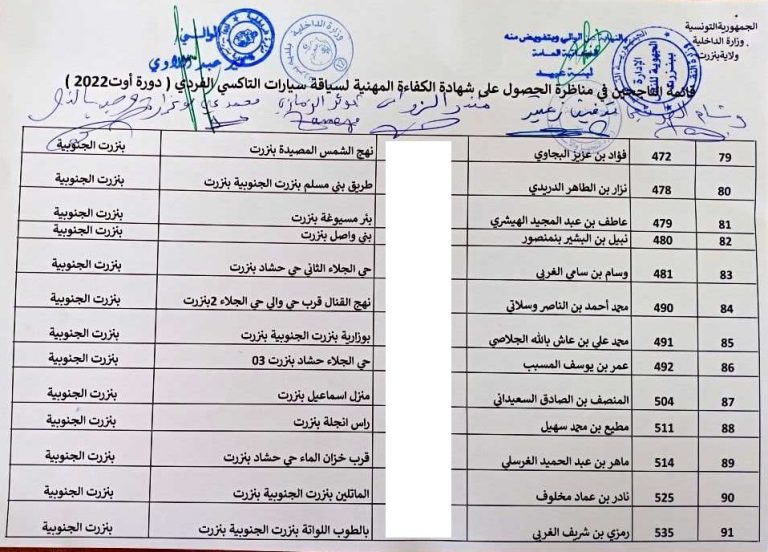 الجمهورية التونسية
وزارة الداخلية
ولاية بنزرت
الوالي
قائمة الناجحين في مناظرة الحصول على شهادة الكفاءة المهنية لسياقة سيارات التاكسي الفردي ( دورة أوت2022 )
79 472 فؤاد بن عزيز البجاوي نهج الشمس المصيدة بنزرت بنزرت الجنوبية
80 478 نزار بن الطاهر الدريدي طريق بني مسلم بنزرت الجنوبية بنزرت بنزرت الجنوبية
81 479 عاطف بن عبد المجيد الهيشري بئر مسيوغة بنزرت بنزرت الجنوبية
82 480 نبيل بن البشير بنمنصور بني واصل بنزرت بنزرت الجنوبية
83 481 وسام بن سامي الغربي حي الجلاء الثاني حي حشاد بنزرت بنزرت الجنوبية
84 490 محمد أحمد بن الناصر وسلاتي نهج القنال قرب حي والي حي الجلاء 2بنزرت بنزرت الجنوبية
85 491 محمد علي بن عاش بالله الجلاصي بوزارية بنزرت الجنوبية بنزرت بنزرت الجنوبية
86 492 عمر بن يوسف المسبب حي الجلاء حشاد بنزرت 03 بنزرت الجنوبية
87 504 المنصف بن الصادق السعيداني منزل اسماعيل بنزرت بنزرت الجنوبية
88 511 مطيع بن محمد سهيل راس انجلة بنزرت بنزرت الجنوبية
89 514 ماهر بن عبد الحميد الغرسلي قرب خزان الماء حي حشاد بنزرت بنزرت الجنوبية
90 525 نادر بن عماد مخلوف الماتلين بنزرت الجنوبية بنزرت بنزرت الجنوبية
91 535 رمزي بن شريف الغربي بالطوب اللواتة بنزرت الجنوبية بنزرت بنزرت الجنوبية